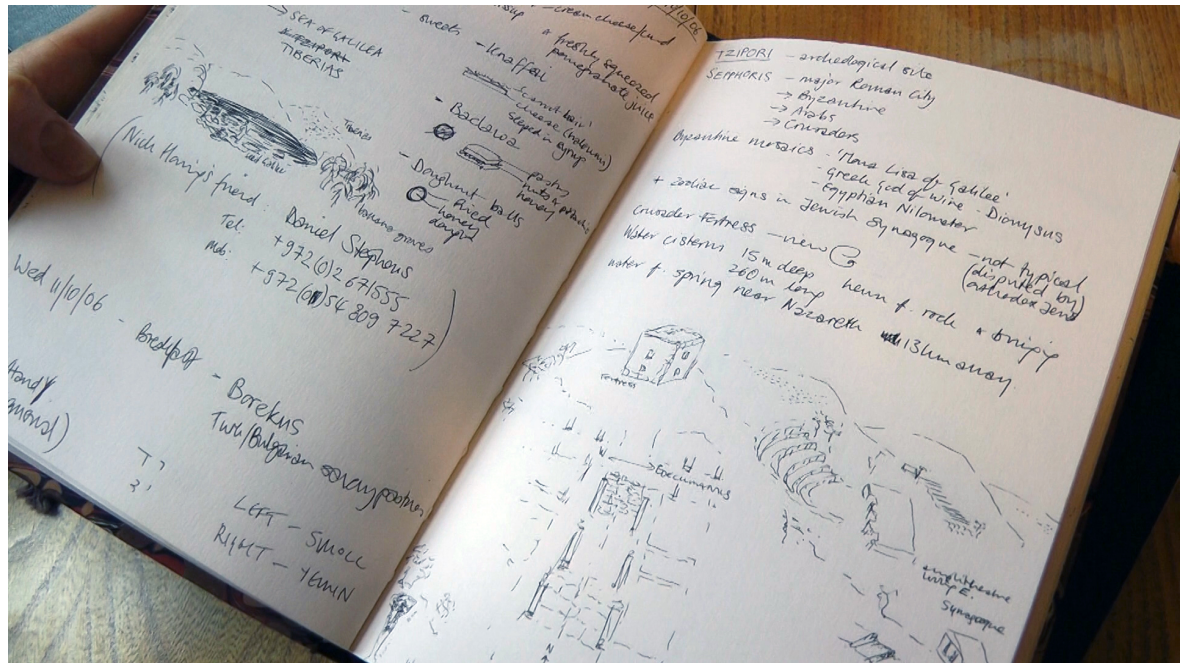 SEA OF GALILEA
TIBERIAS
- sweets
- cream cheese/curd
+ freshly squeezed
pomegranate juice
- Knaffeh
cheese (haloumi)
steeped in syrup
- Baclawa
pastry
nuts
honey
- Doughnut balls
fried
honey
Tiberias
banana groves
(Nick Harris's friend: Daniel Stephens
Tel: +972(0)2 671555
Mob: +972(0)54 809 7227)
Wed 11/10/06 - Breakfast - Borekas
Turk/Bulgarian savoury pastries
LEFT - SMOLL
RIGHT - YEMIN
10/06
TZIPORI - archeological site
SEPPHORIS - major Roman City
→ Byzantine
→ Arabs
→ Crusaders
Byzantine mosaics - 'Mona Lisa of Galilee'
- Greek God of Wine - Dionysus
- Egyptian Nilometer
+ zodiac signs in Jewish synagogue - not typical
(disputed by
orthodox Jews)
Crusader Fortress - view
Water cisterns 15m deep hewn f. rock + bringing
260m long
water f. spring near Nazareth 13km away.
Fortress
amphitheatre
Synagogue